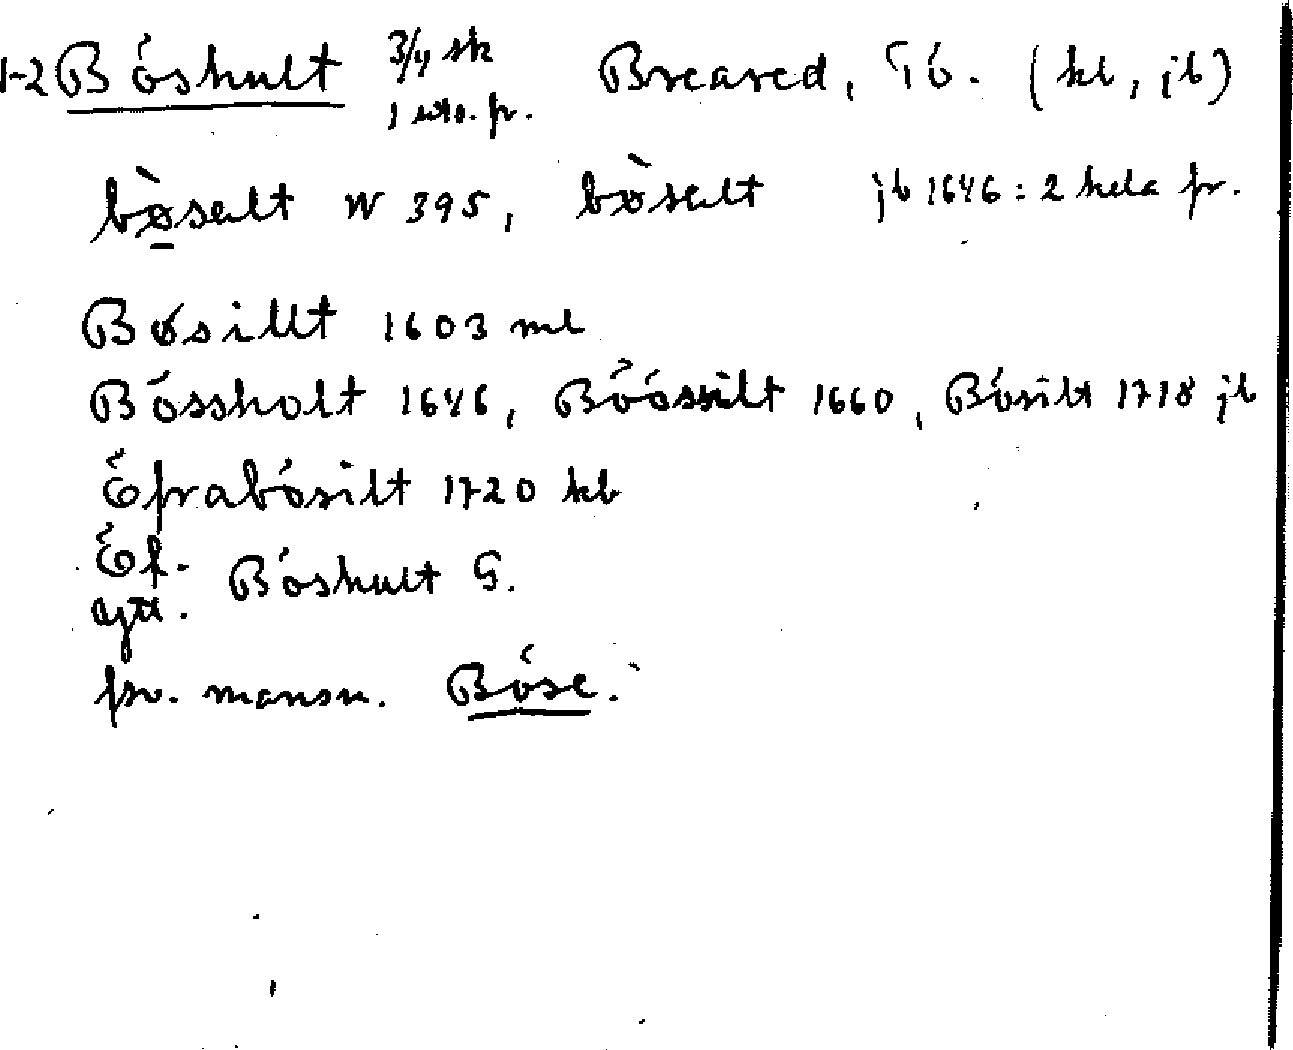 1-2 Böshult 3/4 sk Breared, Tö. (kb, jb)
1 uto. fr.
bø̀salt W 395, bø̀salt jb 1646: 2 hela fr.
Bøsillt 1603 ml
Bössholt 1646, Böössilt 1660, Bösilt 1718 jb
Öfrabösilt 1720 kb
Öf. Böshult G.
ytt.
fsv. mansn. Böse.